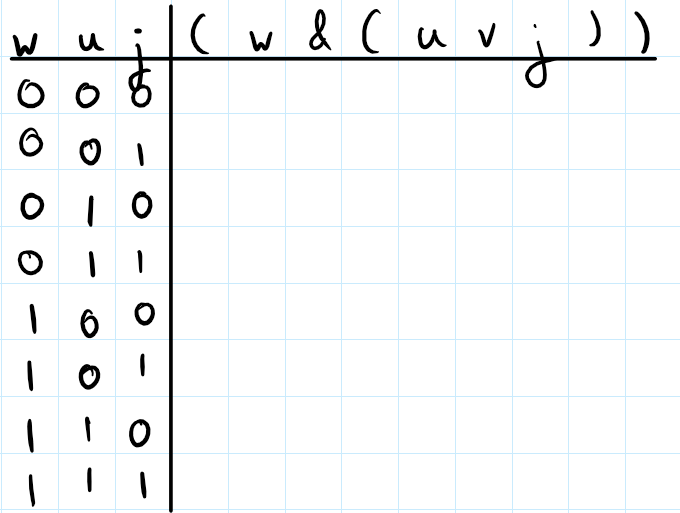 w u j ( w & ( u v j ) )
0 0 0
0 0 1
0 1 0
0 1 1
1 0 0
1 0 1
1 1 0
1 1 1